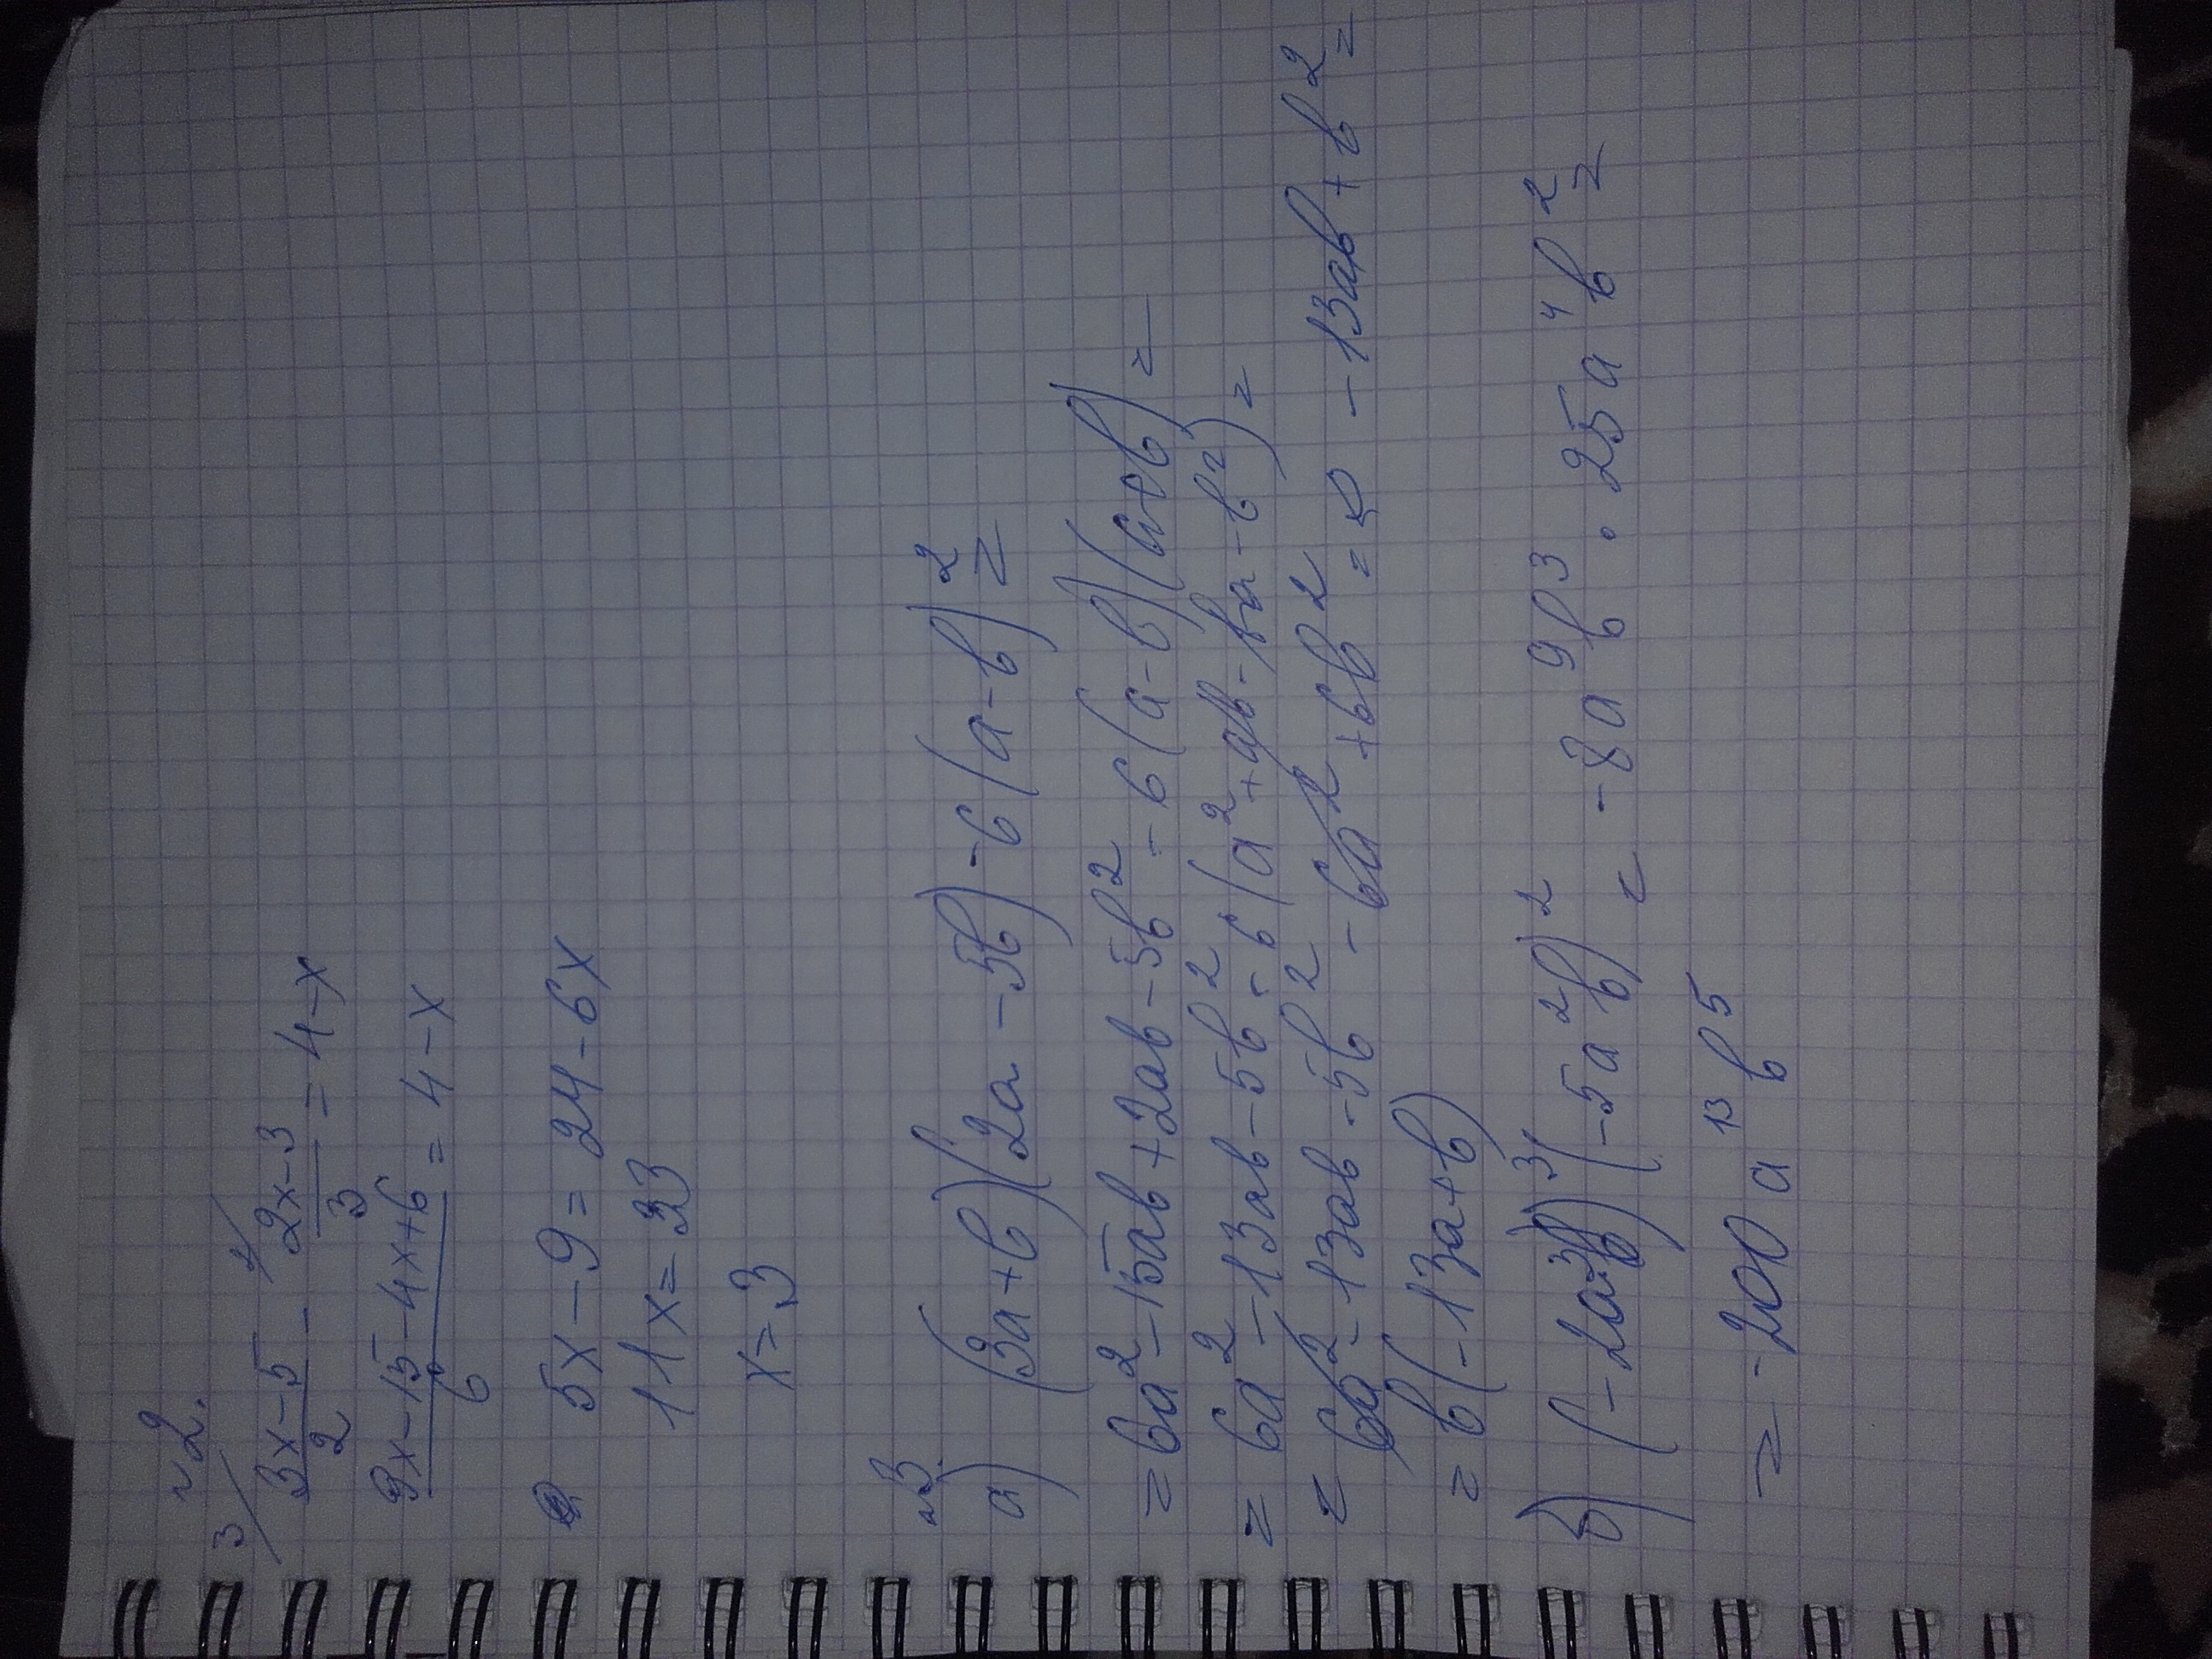 №2.
3/ 2/
(3x-5)/2 - (2x-3)/3 = 4-x
(9x-15-4x+6)/6 = 4-x
5x-9=24-6x
11x=33
x=3
№3.
а) (3a+b)(2a-5b)-6(a-b)²=
=6a²-15ab+2ab-5b²-6(a-b)(a+b)=
=6a²-13ab-5b²-6(a²+ab-ba-b²)=
=6a²-13ab-5b²-6a²+6b²= -13ab+b²=
=b(-13a+b)
б) (-2a³b)³(-5a²b)²= -8a⁹b³·25a⁴b²=
=-200a¹³b⁵